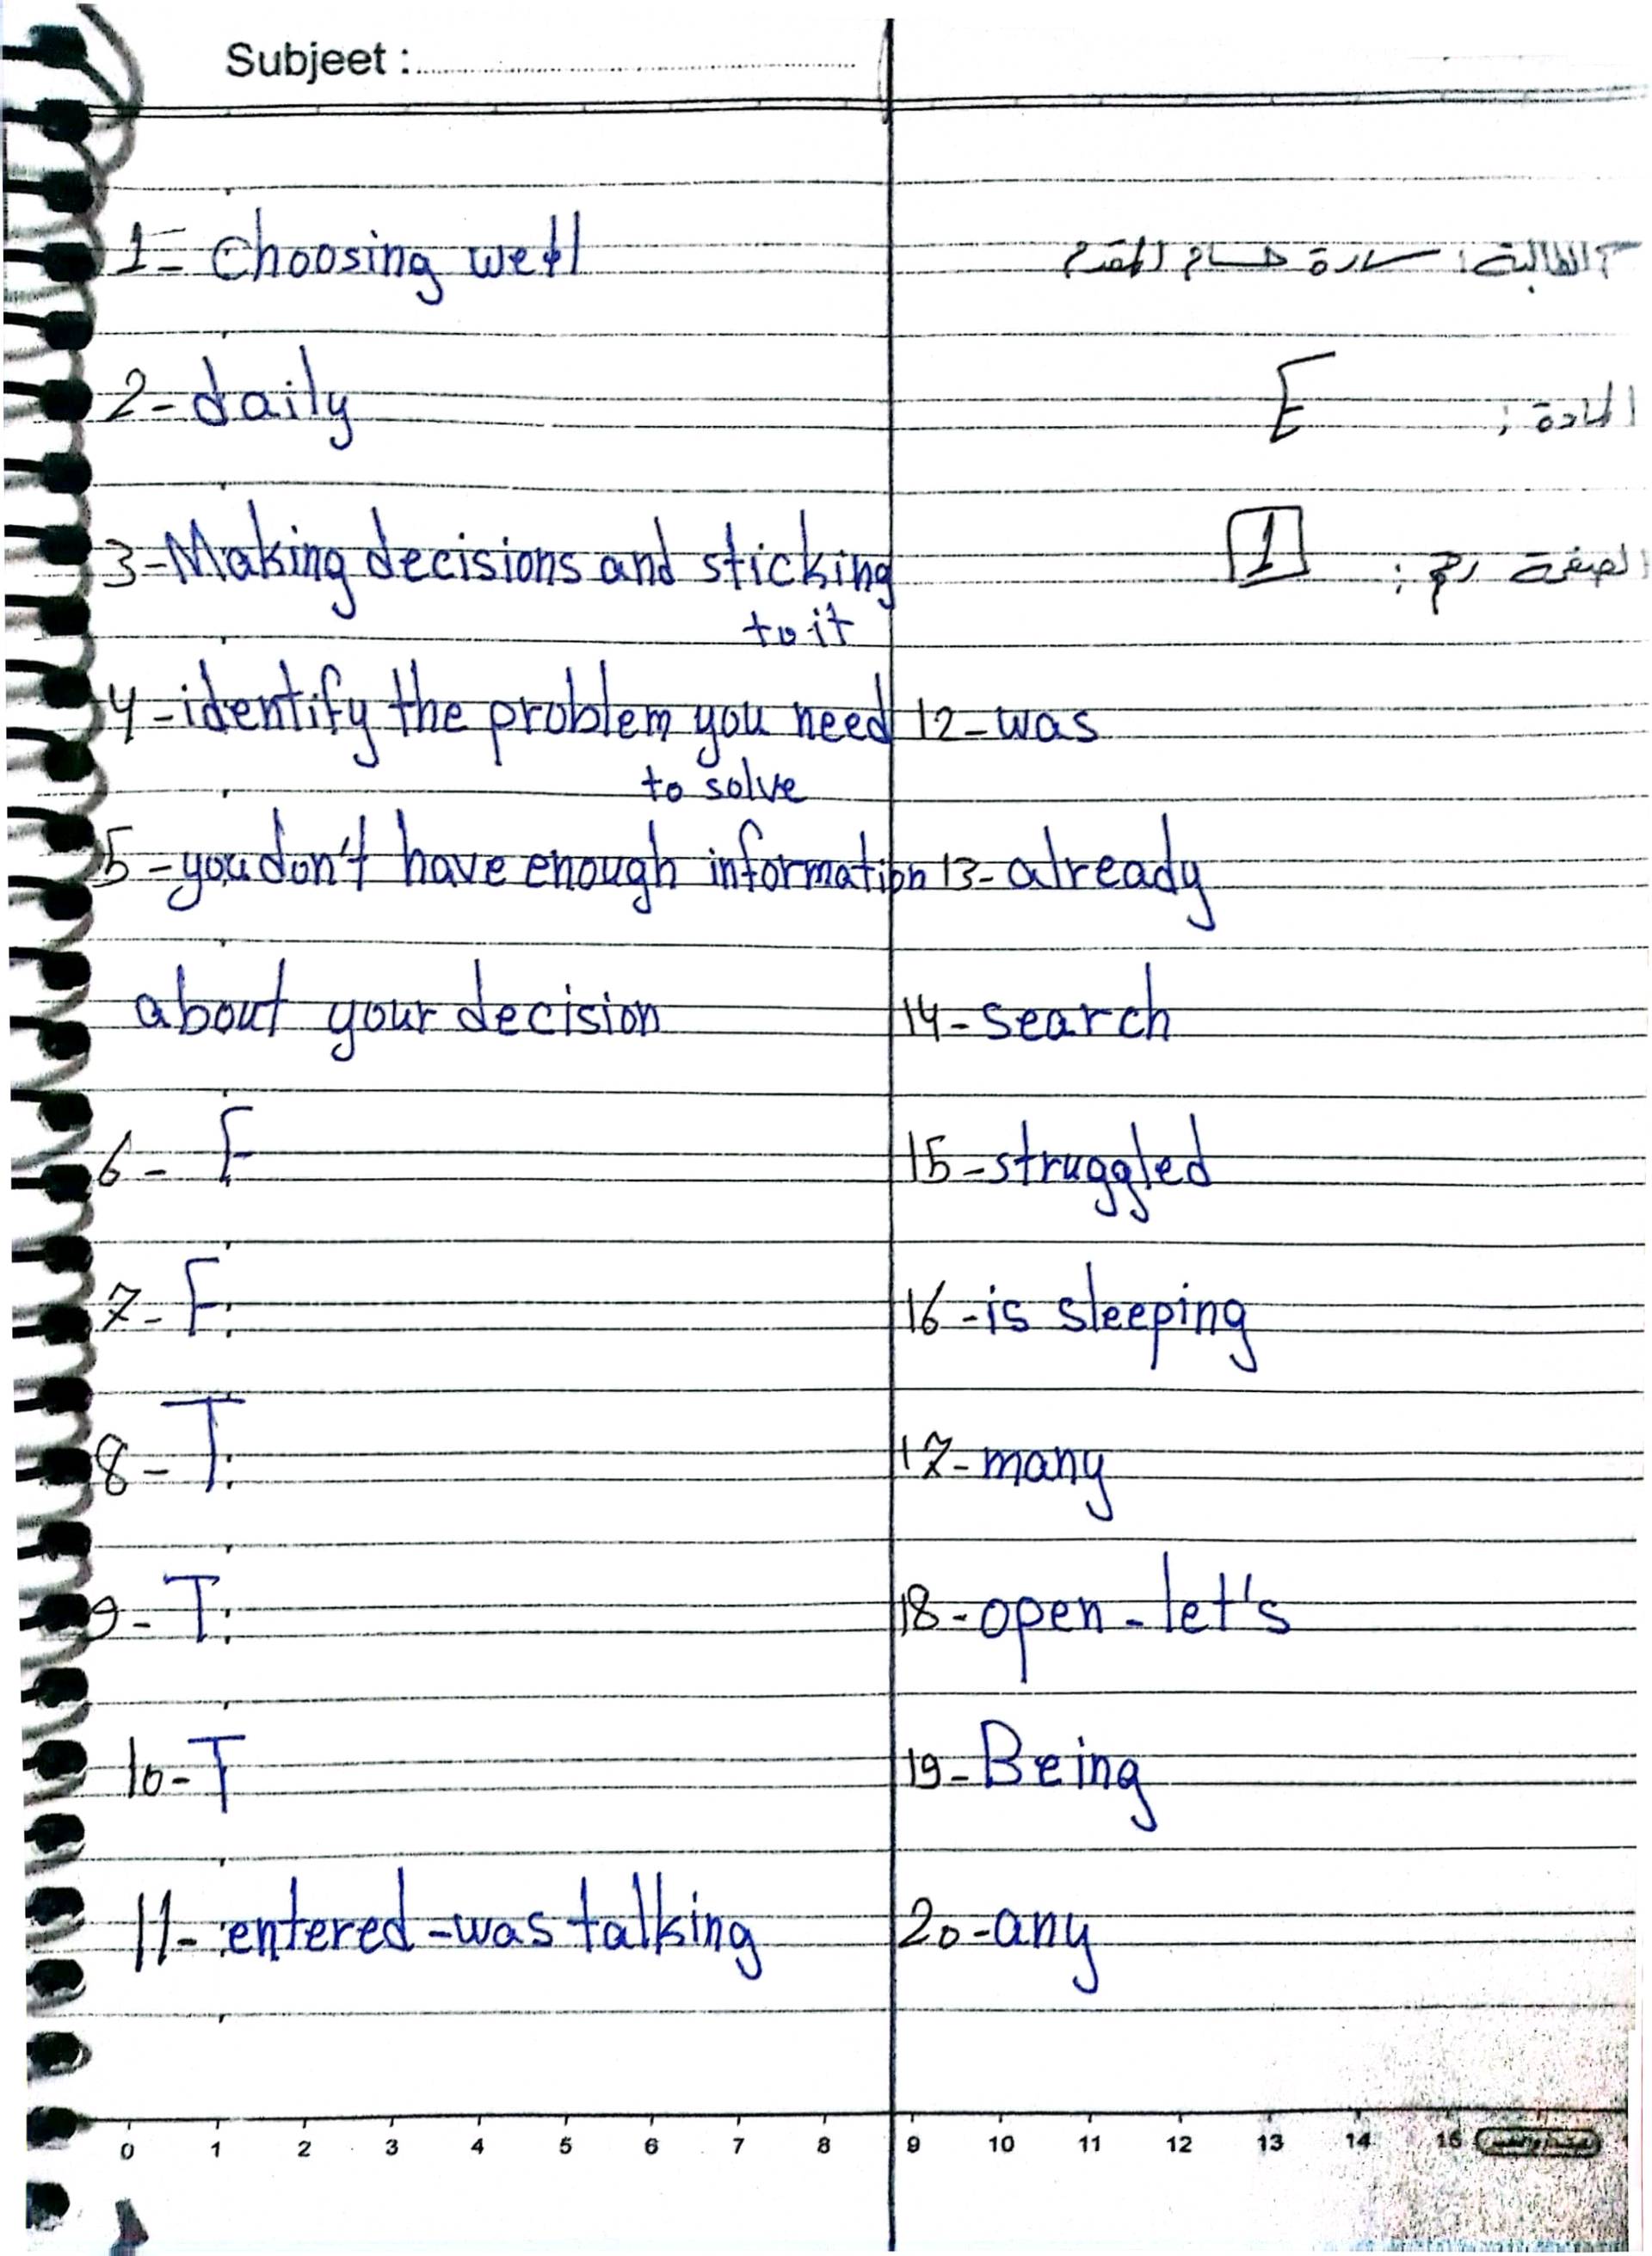 Subjeet :
1- Choosing well
2- daily
3- Making decisions and sticking
to it
4- identify the problem you need
to solve
5- you don't have enough information
about your decision
6- F
7- F
8- T
9- T
10- T
11- entered - was talking
الطالبة: سارة حسام المقدم
المادة: E
الصفحة رقم: 1
12- was
13- already
14- search
15- struggled
16- is sleeping
17- many
18- open - let's
19- Being
20- any
0 1 2 3 4 5 6 7 8 9 10 11 12 13 14 15